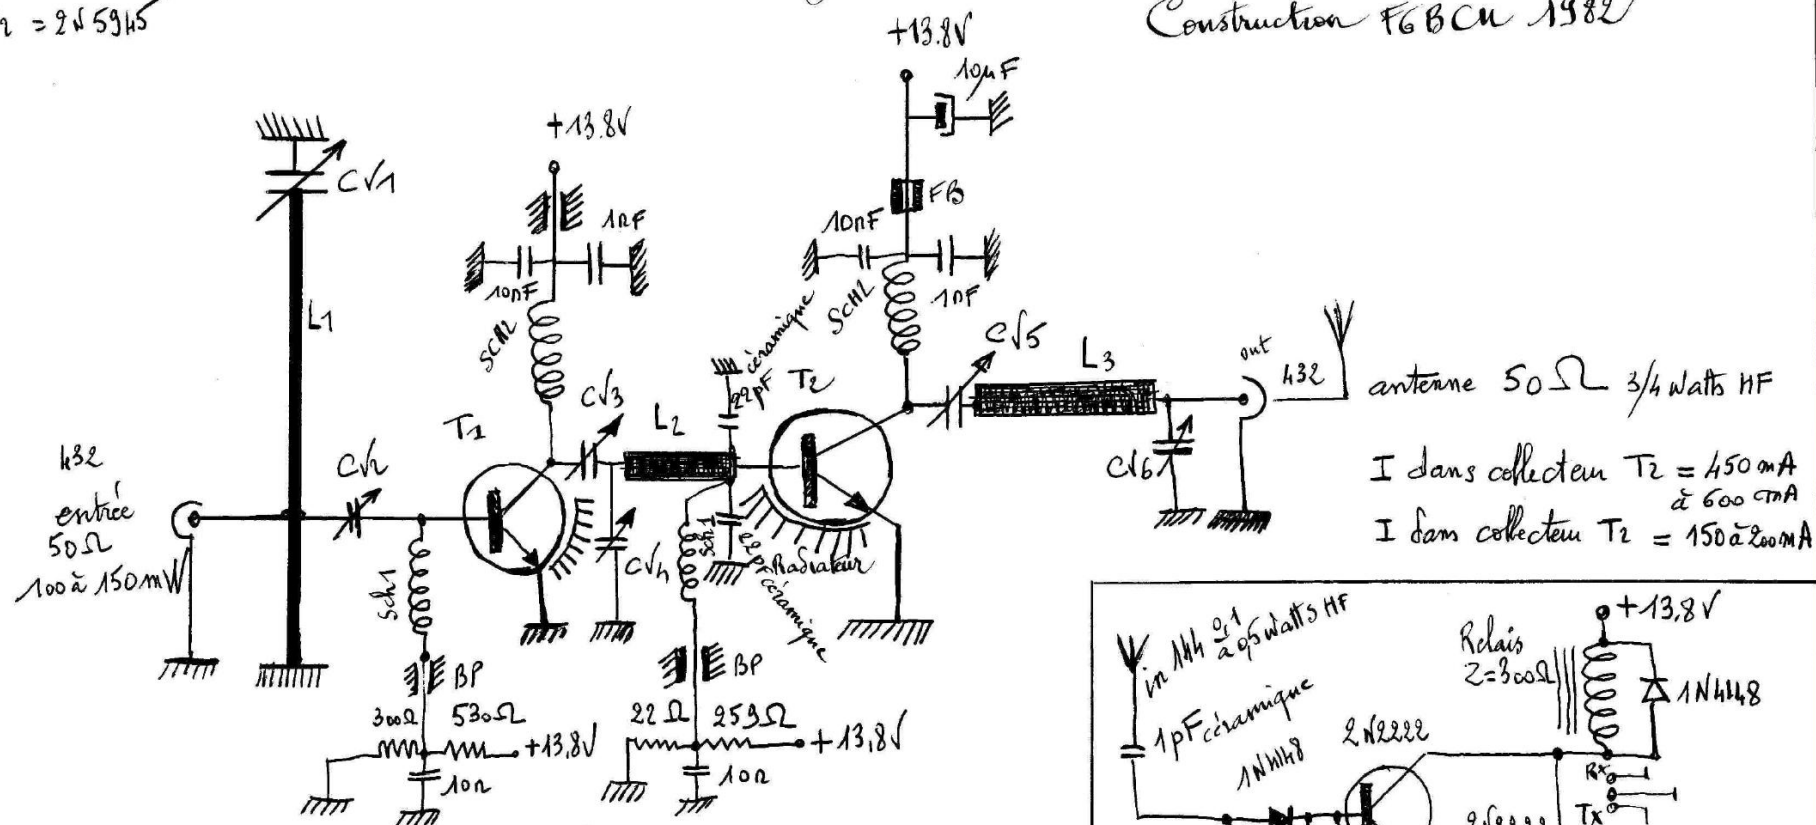 = 2N5945
Construction F6BCU 1982
+13.8V
10µF
+13.8V
CV1
FB
1nF
10nF
10nF
1nF
L1
SCH2
SCH2
céramique
22pF
CV5
L3
out
432
antenne 50Ω 3/4 Watts HF
T1
CV3
L2
T2
CV6
I dans collecteur T2 = 450mA
à 600mA
I dans collecteur T2 = 150à200mA
432
entrée
50Ω
100à 150mW
CV2
Sch1
CV4
Sch1
22pF
céramique
Radiateur
BP
BP
300Ω 530Ω
+13,8V
10n
22Ω 259Ω
+13,8V
10n
in 144 0,1
à 0,5 Watts HF
1pF céramique
1N4148
2N2222
Relais
Z=300Ω
+13,8V
1N4148
Rx
Tx